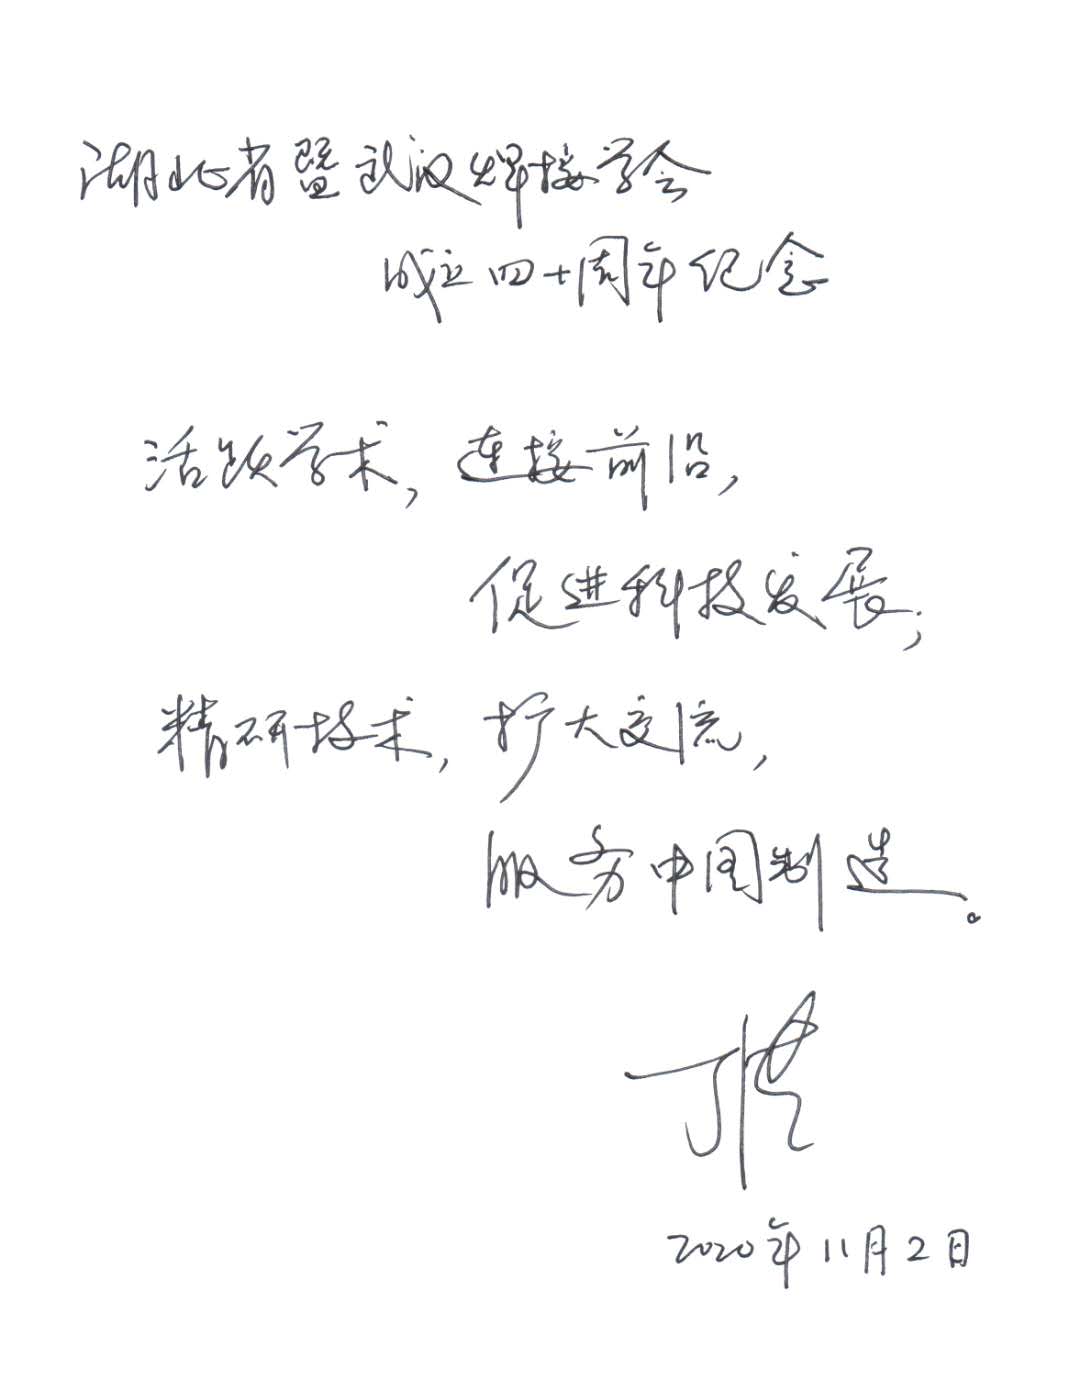 湖北省暨武汉焊接学会
成立四十周年纪念
活跃学术，连接前沿，
促进科技发展；
精研技术，扩大交流，
服务中国制造。
2020年11月2日